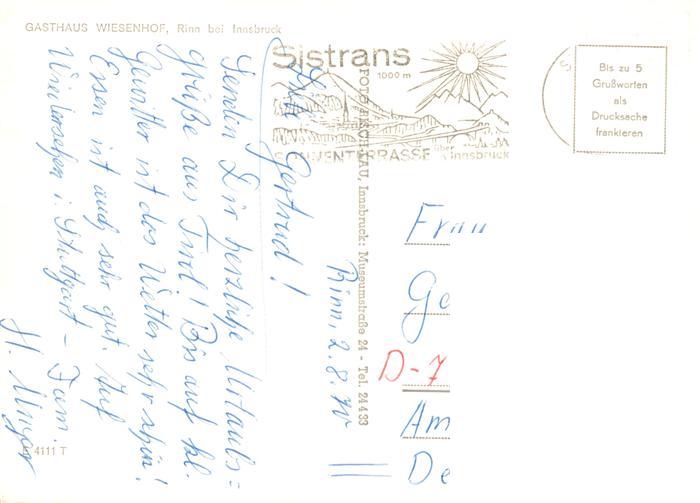 GASTHAUS WIESENHOF, Rinn bei Innsbruck
Sistrans
1000 m
SONNENTERRASSE über Innsbruck
Bis zu 5
Grußworten
als
Drucksache
frankieren
Rinn, 2.8.70
Gertrud!
Senden Dir herzliche Urlaubs=
grüße aus Tirol! Bis auf kl.
Gewitter ist das Wetter sehr schön!
Essen ist auch sehr gut. Auf
Wiedersehen i. Stuttgart – Fam.
H. Unger
Innsbruck: Museumstraße 24 - Tel. 24433
Frau
Ge
D-7
Am
De
4111 T